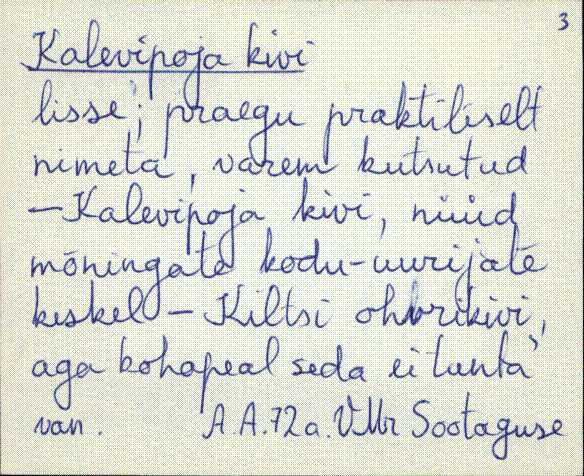 3
Kalevipoja kivi
lisse; praegu praktiliselt
nimeta, varem kutsutud
– Kalevipoja kivi, nüüd
mõningate kodu-uurijate
keskel – Kiltsi ohvrikivi,
aga kohapeal seda ei tunta
van. A.A.72a. V.Mr Sootaguse